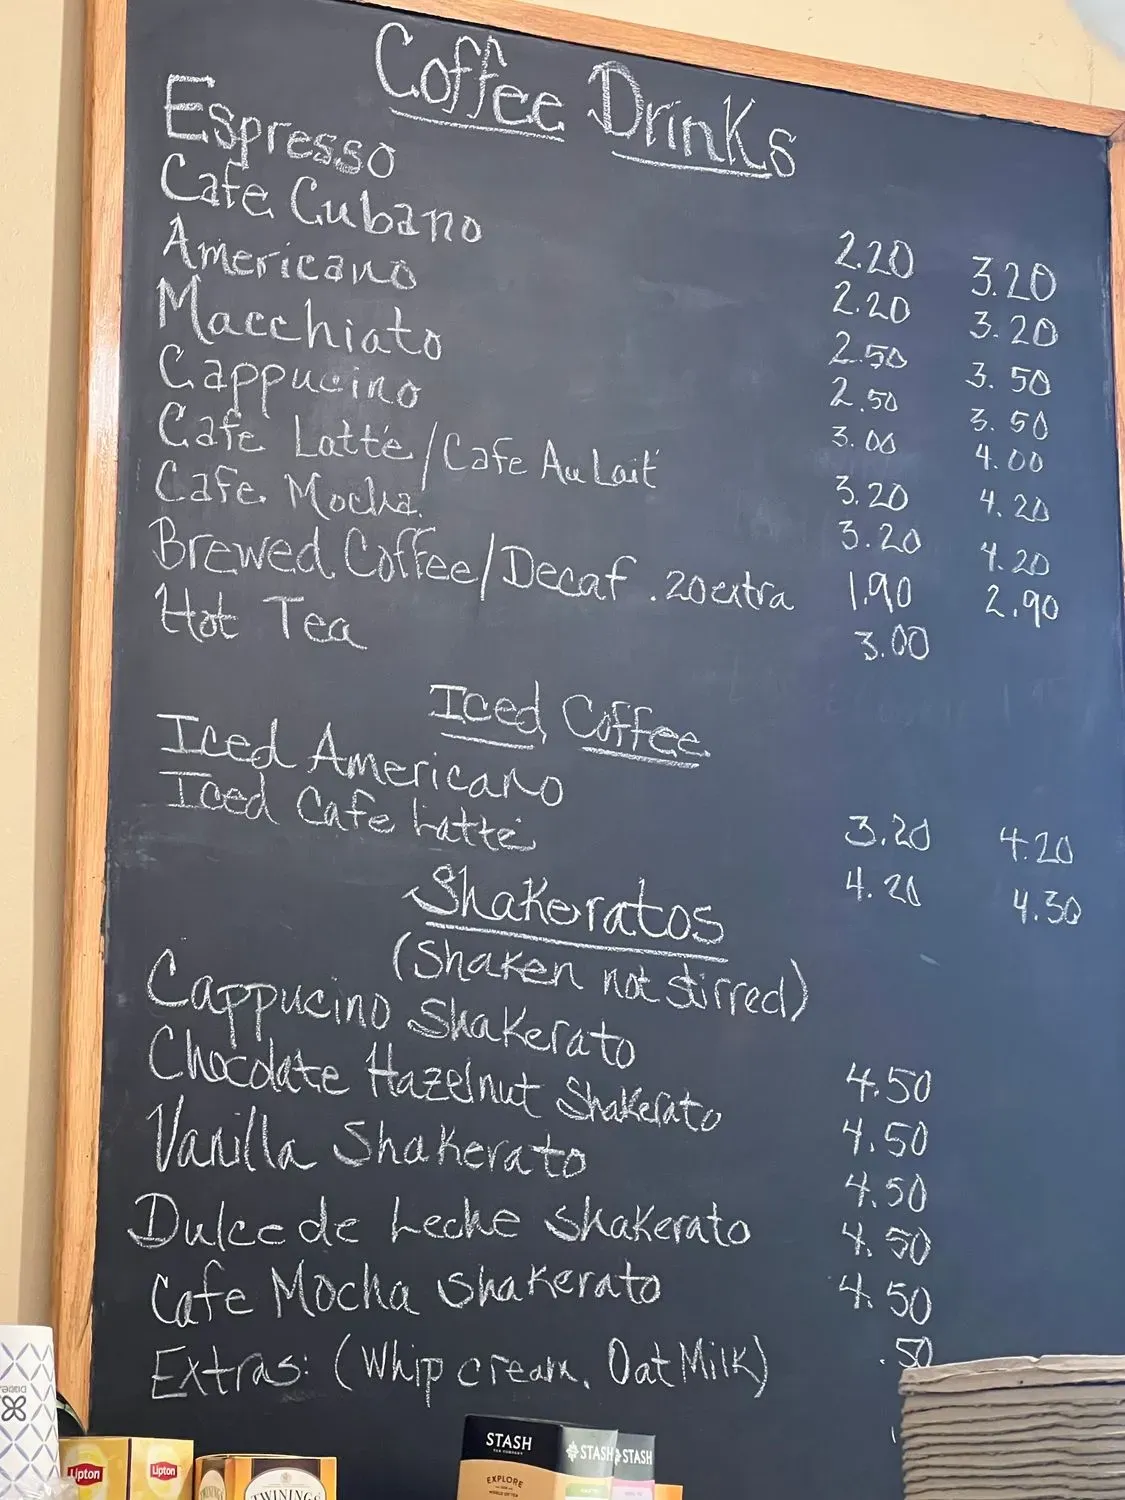 Coffee Drinks
Espresso 2.20 3.20
Cafe Cubano 2.20 3.20
Americano 2.50 3.50
Macchiato 2.50 3.50
Cappucino 3.00 4.00
Cafe Latté/Cafe Au Lait 3.20 4.20
Cafe Mocha 3.20 4.20
Brewed Coffee/Decaf .20 extra 1.90 2.90
Hot Tea 3.00
Iced Coffee
Iced Americano 3.20 4.20
Iced Cafe Latté 4.20 4.30
Shakeratos
(Shaken not stirred)
Cappucino Shakerato 4.50
Chocolate Hazelnut Shakerato 4.50
Vanilla Shakerato 4.50
Dulce de Leche Shakerato 4.50
Cafe Mocha Shakerato 4.50
Extras: (Whip cream, Oat Milk) .50
Lipton Lipton
TWININGS
STASH STASH STASH
EXPLORE